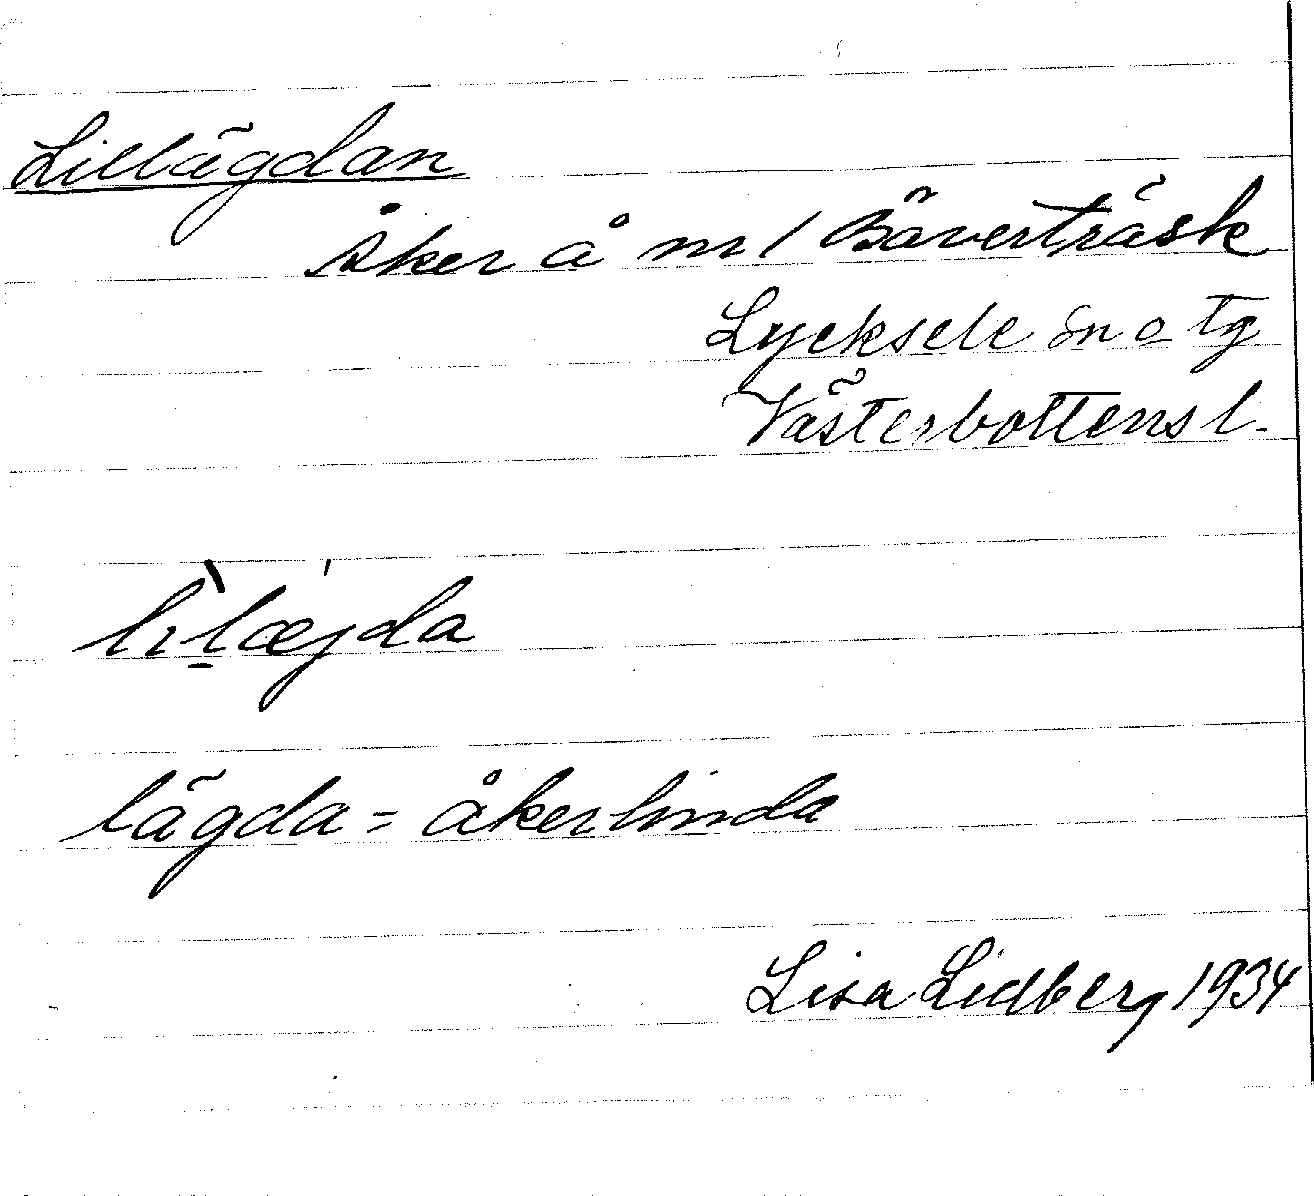 Lillägdan
Åker å nr 1 Bäverträsk
Lycksele sn o tg
Västerbottens l.
lìlæ̍jda
lägda = åkerlinda
Lisa Lidberg 1934